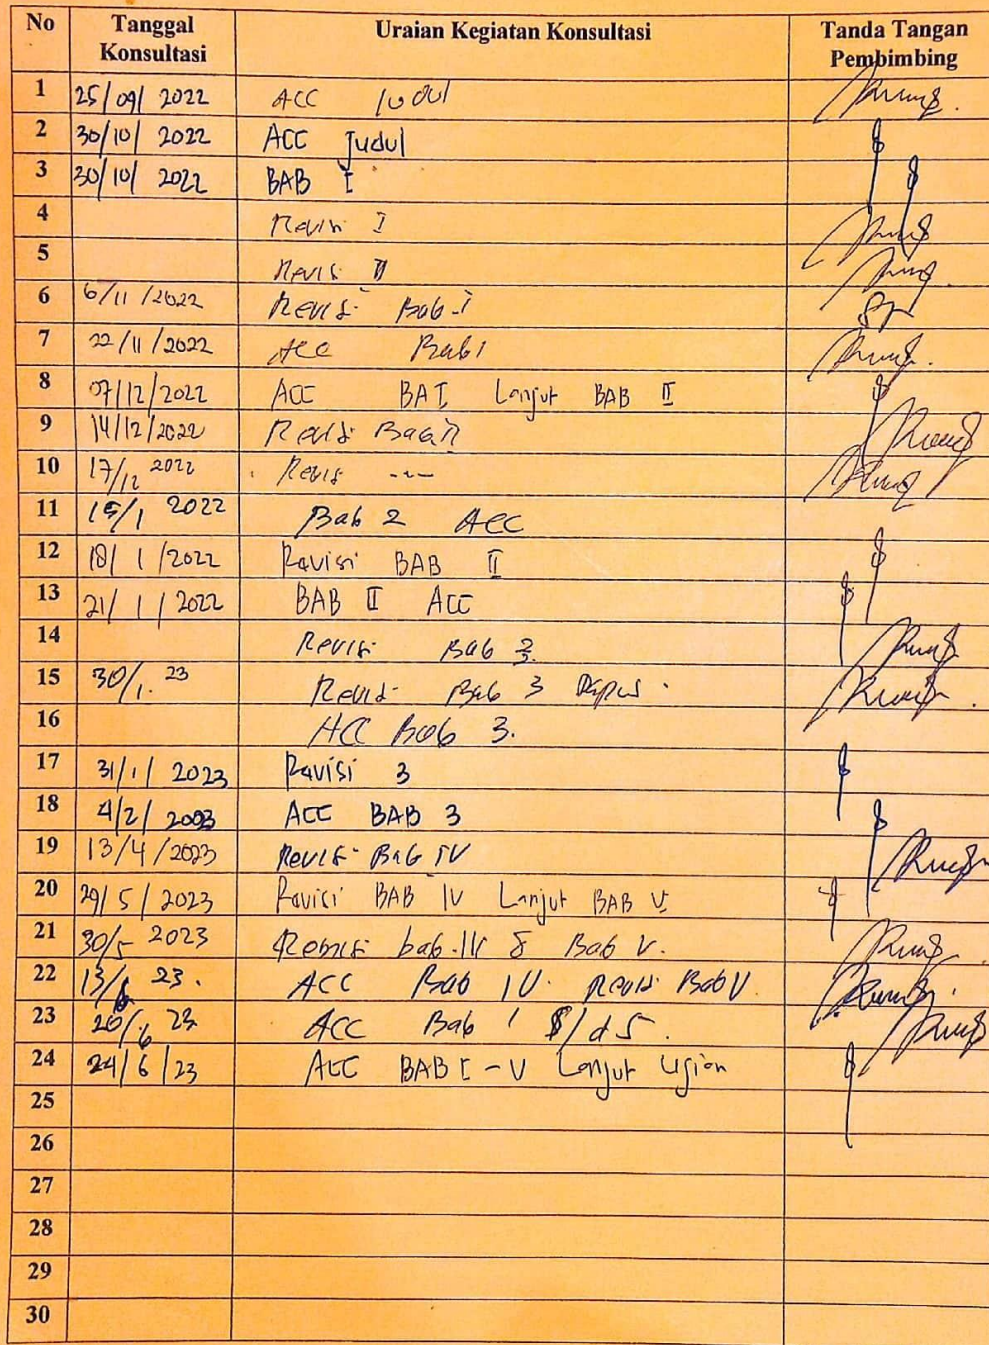 No Tanggal Konsultasi Uraian Kegiatan Konsultasi Tanda Tangan Pembimbing
1 25/09/2022 ACC Judul
2 30/10/2022 ACC Judul
3 30/10/2022 BAB I
4 Revisi I
5 Revisi II
6 6/11/2022 Revisi Bab I
7 22/11/2022 ACC Bab 1
8 07/12/2022 ACC BAI Lanjut BAB II
9 14/12/2022 Revisi Bab II
10 17/12 2022 Revisi ---
11 15/1 2022 Bab 2 ACC
12 18/1/2022 Revisi BAB II
13 21/1/2022 BAB II ACC
14 Revisi Bab
15 30/1. 23 Revisi Bab 3
16 ACC Bab 3.
17 31/1/2023 Revisi 3
18 4/2/2023 ACC BAB 3
19 13/4/2023 Revisi Bab IV
20 29/5/2023 Revisi BAB IV Lanjut BAB V
21 30/5 2023 Revisi bab IV & Bab V.
22 13/6 23. ACC Bab IV. Revisi Bab V
23 20/6 23 ACC Bab 1 s/d 5.
24 24/6/23 ACC BAB I - V Lanjut Ujian
25
26
27
28
29
30